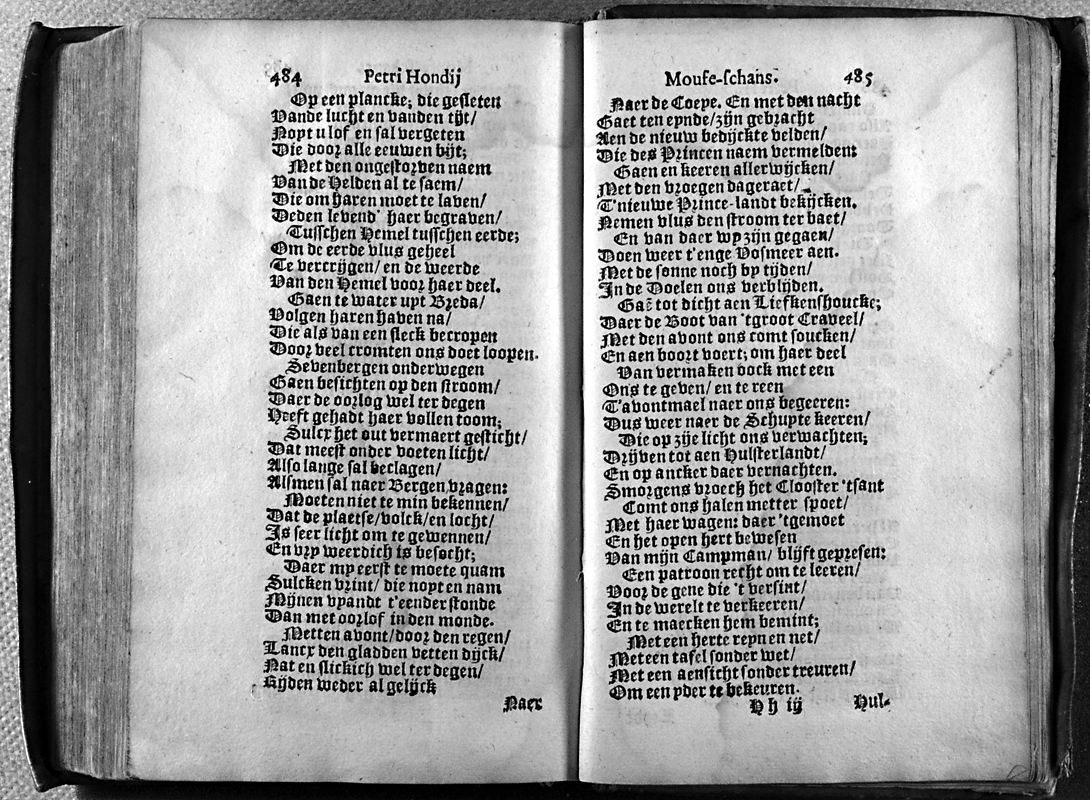 484 Petri Hondij
Op een plancke; die gesleten
Vande lucht en vanden tijt/
Noyt u lof en sal vergeten
Die door alle eeuwen bijt;
Met den ongestorven naem
Van de Helden al te saem/
Die om haren moet te laven/
Deden levend' haer begraven/
Tusschen Hemel tusschen eerde;
Om de eerde vlus geheel
Te vercrijgen/ en de weerde
Van den Hemel voor haer deel.
Gaen te water uyt Breda/
Volgen haren haven na/
Die als van een sleck becropen
Door veel cromten ons doet loopen.
Sevenbergen onderwegen
Gaen besichten op den stroom/
Daer de oorlog wel ter degen
Heeft gehadt haer vollen toom;
Sulcx het out vermaert gesticht/
Dat meest onder voeten licht/
Also lange sal beclagen/
Alsmen sal naer Bergen vragen:
Moeten niet te min bekennen/
Dat de plaetse/ volck/ en locht/
Is seer licht om te gewennen/
En vry weerdich is besocht;
Daer my eerst te moete quam
Sulcken vrint/ die noyt en nam
Mijnen vyandt t'eender stonde
Dan met oorlof in den monde.
Metten avont/ door den regen/
Lancx den gladden vetten dijck/
Nat en slickich wel ter degen/
Rijden weder al gelijck
Naer
Mouse-schans. 485
Naer de Coepe. En met den nacht
Gaet ten eynde/ zijn gebracht
Aen de nieuw bedijckte velden/
Die des Princen naem vermelden:
Gaen en keeren allerwijcken/
Met den vroegen dageraet/
T'nieuwe Prince-landt bekijcken.
Nemen vlus den stroom ter baet/
En van daer wy zijn gegaen/
Doen weer t'enge Vosmeer aen.
Met de sonne noch by tijden/
In de Doelen ons verblijden.
Gaẽ tot dicht aen Liefkenshoucke;
Daer de Boot van 'tgroot Craveel/
Met den avont ons comt soucken/
En aen boort voert; om haer deel
Van vermaken oock met een
Ons te geven/ en te reen
T'avontmael naer ons begeeren:
Dus weer naer de Schupte keeren/
Die op zije licht ons verwachten;
Drijven tot aen Hulsterlandt/
En op ancker daer vernachten.
Smorgens vroech het Clooster 'tsant
Comt ons halen metter spoet/
Met haer wagen: daer 'tgemoet
En het open hert bewesen
Van mijn Campman/ blijft gepresen:
Een patroon recht om te leeren/
Voor de gene die 't versint/
In de werelt te verkeeren/
En te maecken hem bemint;
Met een herte reyn en net/
Met een tafel sonder wet/
Met een aensicht sonder treuren/
Om een yder te bekeuren.
Hh iij Hul-